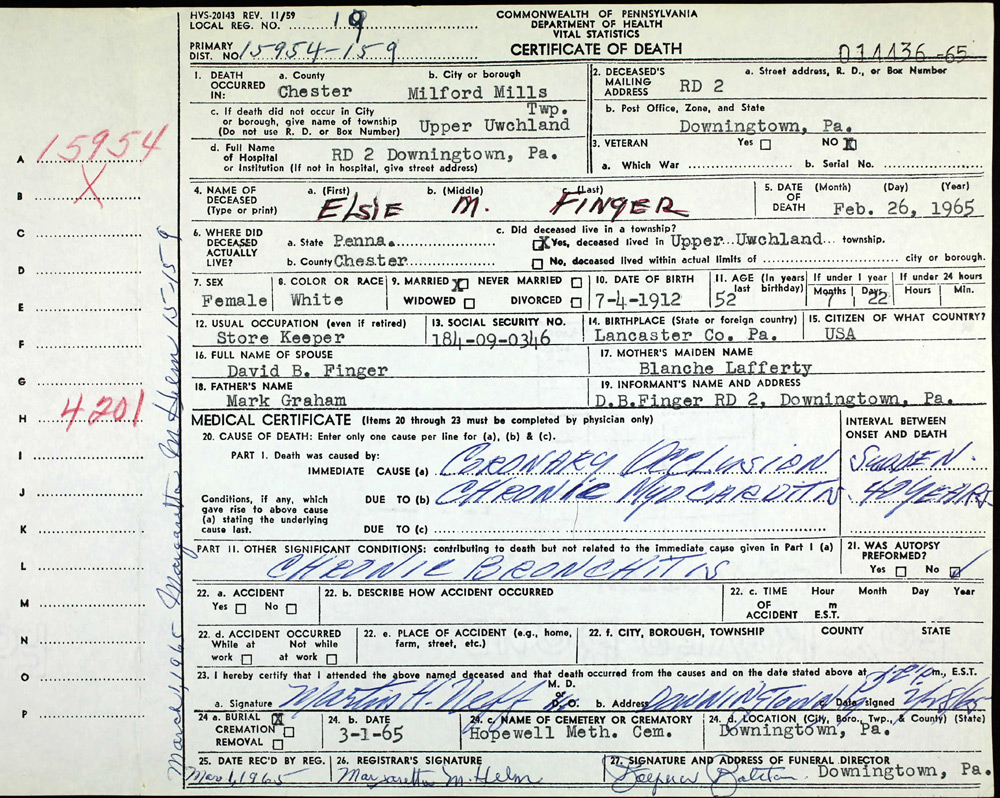 HVS-20143 REV. 11/59
LOCAL REG. NO. 19
COMMONWEALTH OF PENNSYLVANIA
DEPARTMENT OF HEALTH
VITAL STATISTICS
CERTIFICATE OF DEATH
PRIMARY DIST. NO. 15954-159
014436-65
1. DEATH OCCURRED IN: a. County Chester b. City or borough Milford Mills
c. If death did not occur in City or borough, give name of township (Do not use R. D. or Box Number) Upper Uwchland Twp.
d. Full Name of Hospital or Institution (If not in hospital, give street address) RD 2 Downingtown, Pa.
2. DECEASED'S MAILING ADDRESS a. Street address, R. D., or Box Number RD 2
b. Post Office, Zone, and State
Downingtown, Pa.
3. VETERAN Yes NO X
a. Which War b. Serial No.
4. NAME OF DECEASED (Type or print) a. (First) ELSIE b. (Middle) M. c. (Last) FINGER
5. DATE OF DEATH (Month) (Day) (Year) Feb. 26, 1965
6. WHERE DID DECEASED ACTUALLY LIVE? a. State Penna.
b. County Chester
c. Did deceased live in a township?
X Yes, deceased lived in Upper Uwchland township.
No, deceased lived within actual limits of city or borough.
7. SEX Female
8. COLOR OR RACE White
9. MARRIED X NEVER MARRIED
WIDOWED DIVORCED
10. DATE OF BIRTH 7-4-1912
11. AGE (In years last birthday) 52
If under 1 year Months 7 Days 22
If under 24 hours Hours Min.
12. USUAL OCCUPATION (even if retired) Store Keeper
13. SOCIAL SECURITY NO. 184-09-0346
14. BIRTHPLACE (State or foreign country) Lancaster Co. Pa.
15. CITIZEN OF WHAT COUNTRY? USA
16. FULL NAME OF SPOUSE David B. Finger
17. MOTHER'S MAIDEN NAME Blanche Lafferty
18. FATHER'S NAME Mark Graham
19. INFORMANT'S NAME AND ADDRESS D.B.Finger RD 2, Downingtown, Pa.
MEDICAL CERTIFICATE (Items 20 through 23 must be completed by physician only)
INTERVAL BETWEEN ONSET AND DEATH
20. CAUSE OF DEATH: Enter only one cause per line for (a), (b) & (c).
PART I. Death was caused by:
IMMEDIATE CAUSE (a) CORONARY OCCLUSION SUDDEN.
Conditions, if any, which gave rise to above cause (a) stating the underlying cause last.
DUE TO (b) CHRONIC MYOCARDITIS YEARS
DUE TO (c)
PART II. OTHER SIGNIFICANT CONDITIONS: contributing to death but not related to the immediate cause given in Part I (a)
CHRONIC BRONCHITIS
21. WAS AUTOPSY PREFORMED?
Yes No
22. a. ACCIDENT Yes No
22. b. DESCRIBE HOW ACCIDENT OCCURRED
22. c. TIME OF ACCIDENT Hour m E.S.T. Month Day Year
22. d. ACCIDENT OCCURRED While at work Not while at work
22. e. PLACE OF ACCIDENT (e.g., home, farm, street, etc.)
22. f. CITY, BOROUGH, TOWNSHIP COUNTY STATE
23. I hereby certify that I attended the above named deceased and that death occurred from the causes and on the date stated above at m., E.S.T.
a. Signature Martin H. Neff M. D. or D.O. b. Address DOWNINGTOWN c. Date signed 2/28/65
24 a. BURIAL X
CREMATION
REMOVAL
24. b. DATE 3-1-65
24. c. NAME OF CEMETERY OR CREMATORY Hopewell Meth. Cem.
24. d. LOCATION (City, Boro., Twp., & County) (State) Downingtown, Pa.
25. DATE REC'D BY REG. Mar 1, 1965
26. REGISTRAR'S SIGNATURE Margaretta M. Helm
27. SIGNATURE AND ADDRESS OF FUNERAL DIRECTOR Downingtown, Pa.
A 15954
B X
C
D
E
F
G
H 4201
I
J
K
L
M
N
O
P
March 1, 1965 Margaretta M Helm 15-159